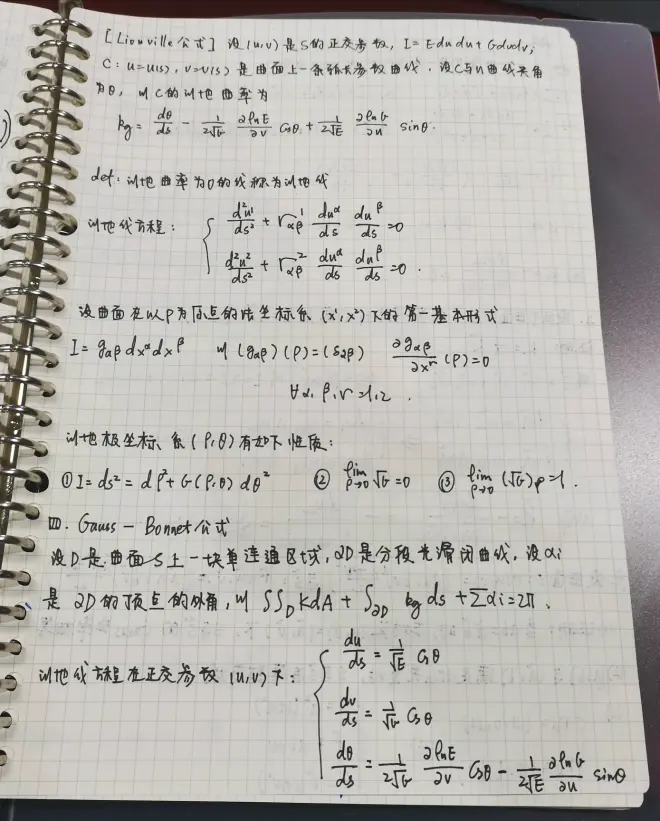 [Liouville 公式] 设(u,v)是S的正交参数, I=Edudu+Gdvdv,
C: u=u(s), v=v(s) 是曲面上一条弧长参数曲线. 设C与u曲线夹角
为θ, 则C的测地曲率为
kg = dθ/ds - 1/(2√G) ∂lnE/∂v cosθ + 1/(2√E) ∂lnG/∂u sinθ.
def: 测地曲率为0的线称为测地线
测地线方程: { d²u¹/ds² + Γ¹αβ duᵅ/ds duᵝ/ds = 0
d²u²/ds² + Γ²αβ duᵅ/ds duᵝ/ds = 0.
设曲面在以P为原点的法坐标系 (x¹,x²) 下的第一基本形式
I = gαβ dxᵅdxᵝ 则 (gαβ)(P)=(δαβ) ∂gαβ/∂xʳ (P)=0
∀α, β, r=1,2.
测地极坐标系(ρ,θ)有如下性质:
① I=ds²=dρ²+G(ρ,θ)dθ² ② lim ρ→0 √G=0 ③ lim ρ→0 (√G)ρ=1.
四. Gauss-Bonnet公式
设D是曲面S上一块单连通区域, ∂D是分段光滑闭曲线, 设αi
是∂D的顶点的外角, 则 ∫∫D KdA + ∫∂D kg ds + ∑αi=2π.
测地线方程在正交参数(u,v)下: { du/ds = 1/√E cosθ
dv/ds = 1/√G cosθ
dθ/ds = 1/(2√G) ∂lnE/∂v cosθ - 1/(2√E) ∂lnG/∂u sinθ